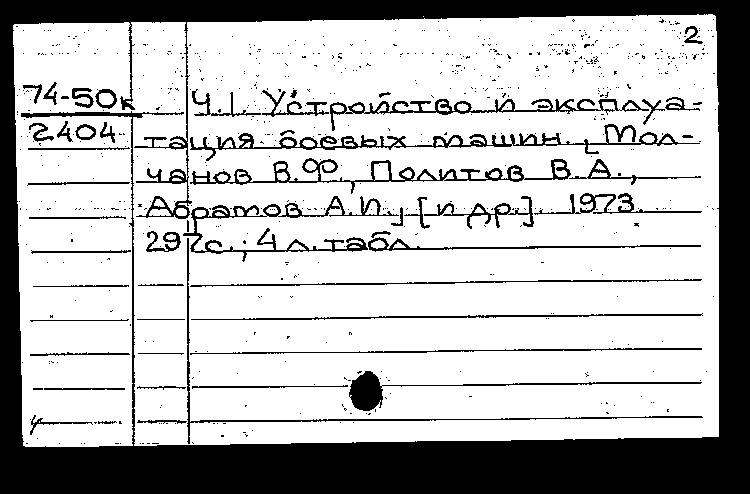 2
74-50к
2404
Ч.I. Устройство и эксплуа-
тация боевых машин. [Мол-
чанов В.Ф., Политов В.А.,
Абрамов А.И.] [и др.] 1973.
297с.; 4 л. табл.